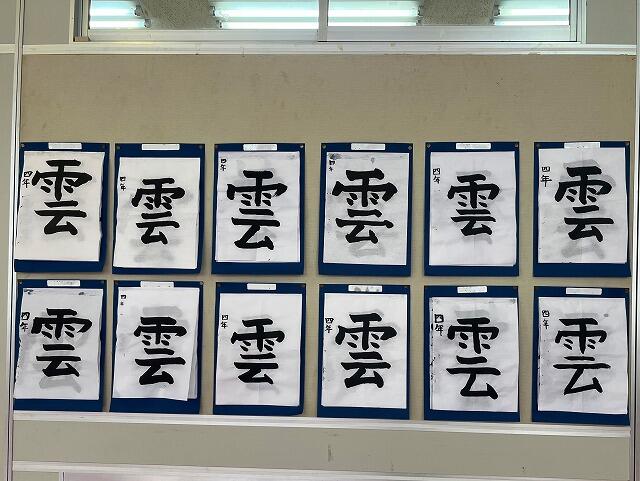 四年 雲
四年 雲
四年 雲
四年 雲
四年 雲
四年 雲
四年 雲
四年 雲
四年 雲
四年 雲
四年 雲
四年 雲